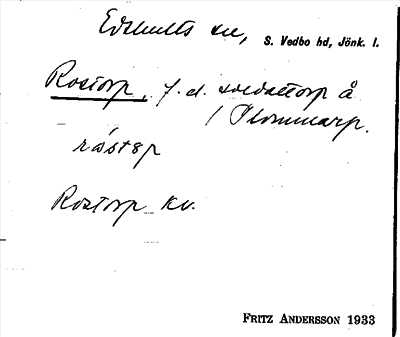 Edshults sn, S. Vedbo hd, Jönk. l.
Rostorp, f. d. soldattorp å
/ Plommarp.
råstεp
Rostorp kv.
FRITZ ANDERSSON 1933